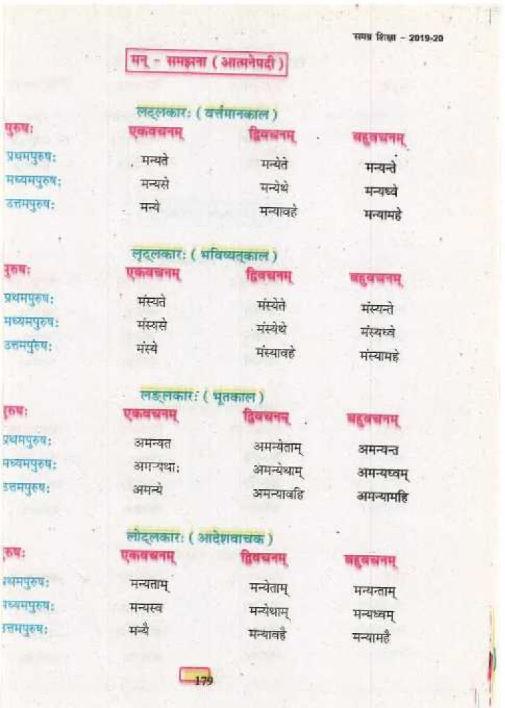 समग्र शिक्षा – 2019-20
मन् - समझना ( आत्मनेपदी )
लट्लकारः ( वर्त्तमानकाल )
पुरुषः एकवचनम् द्विवचनम् बहुवचनम्
प्रथमपुरुषः मन्यते मन्येते मन्यन्ते
मध्यमपुरुषः मन्यसे मन्येथे मन्यध्वे
उत्तमपुरुषः मन्ये मन्यावहे मन्यामहे
लृट्लकारः ( भविष्यत्काल )
पुरुषः एकवचनम् द्विवचनम् बहुवचनम्
प्रथमपुरुषः मंस्यते मंस्येते मंस्यन्ते
मध्यमपुरुषः मंस्यसे मंस्येथे मंस्यध्वे
उत्तमपुरुषः मंस्ये मंस्यावहे मंस्यामहे
लङ्लकारः ( भूतकाल )
रुषः एकवचनम् द्विवचनम् बहुवचनम्
प्रथमपुरुषः अमन्यत अमन्येताम् अमन्यन्त
मध्यमपुरुषः अमन्यथाः अमन्येथाम् अमन्यध्वम्
उत्तमपुरुषः अमन्ये अमन्यावहि अमन्यामहि
लोट्लकारः ( आदेशवाचक )
रुषः एकवचनम् द्विवचनम् बहुवचनम्
प्रथमपुरुषः मन्यताम् मन्येताम् मन्यन्ताम्
मध्यमपुरुषः मन्यस्व मन्येथाम् मन्यध्वम्
उत्तमपुरुषः मन्यै मन्यावहै मन्यामहै
179